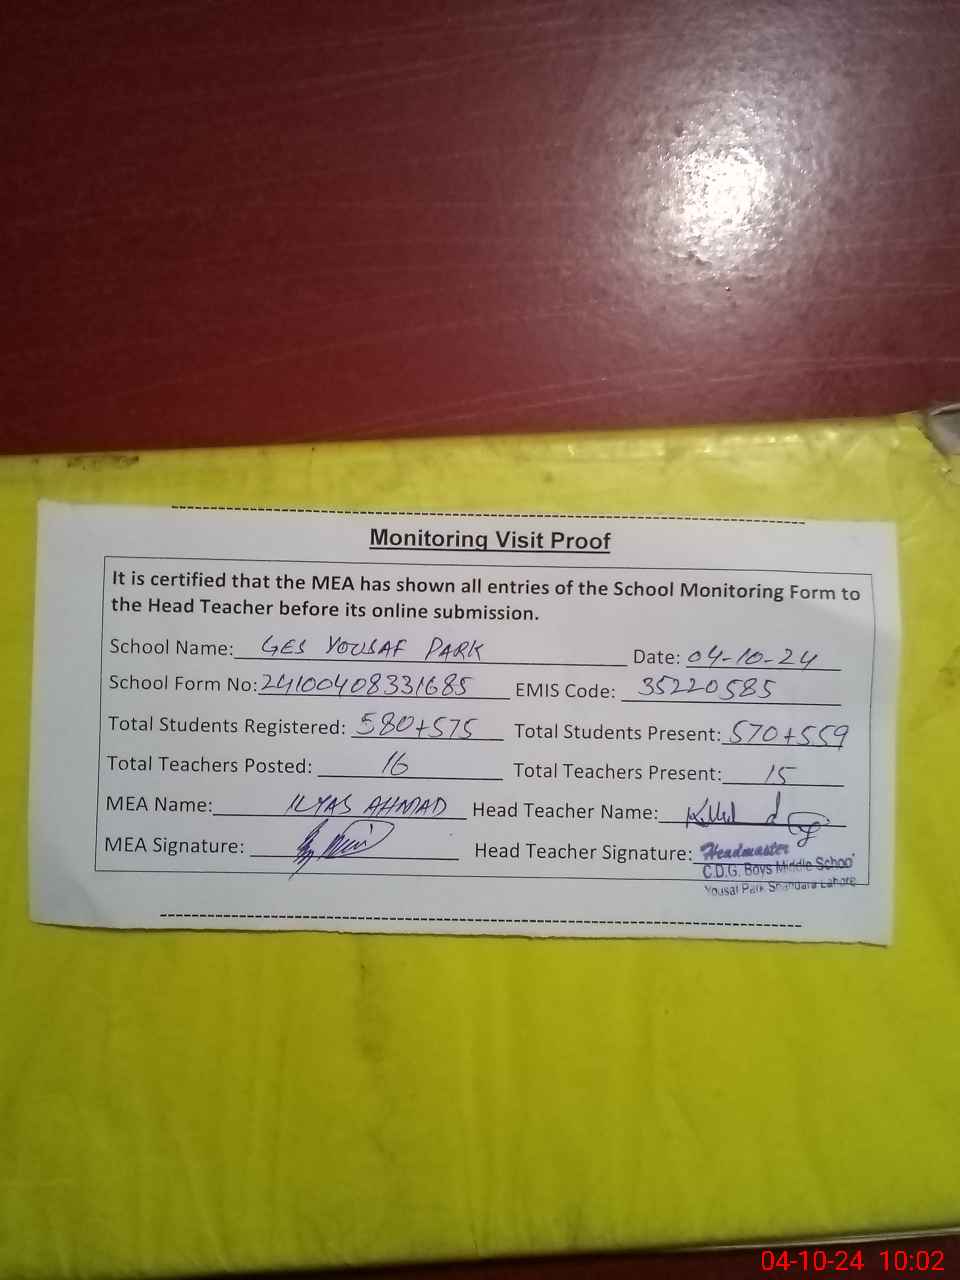 Monitoring Visit Proof
It is certified that the MEA has shown all entries of the School Monitoring Form to
the Head Teacher before its online submission.
School Name: GES YOUSAF PARK Date: 04-10-24
School Form No: 24100408331685 EMIS Code: 35220585
Total Students Registered: 580+575 Total Students Present: 570+559
Total Teachers Posted: 16 Total Teachers Present: 15
MEA Name: ILYAS AHMAD Head Teacher Name:
MEA Signature: Head Teacher Signature:
Headmaster
C.D.G. Boys Middle School
Yousaf Park Shahdara Lahore
04-10-24 10:02